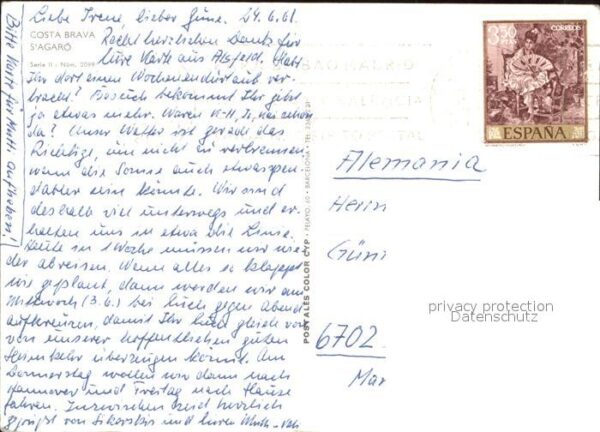 Liebe Irene, lieber Güne. 24.6.68.
COSTA BRAVA
S'AGARÓ
Serie II - Núm. 2099
Recht herzlichen Dank für
Eure Karte aus Alsfeld. Habt
Ihr dort einen Wochenendurlaub ver-
bracht? Besuch bekommt Ihr jetzt
ja etwas mehr. Waren schon
da? Unser Wetter ist gerade das
Richtige, um nicht zu verbrennen,
wenn die Sonne auch etwas
könnte. Wir sind
deshalb viel unterwegs und er-
halten uns so etwa die
Heute in 1 Woche müssen wir wie-
der abreisen. Wenn alles so klappt
wie geplant, dann werden wir am
Mittwoch (3.6.) bei Euch gegen Abend
aufkreuzen, damit Ihr Euch gleich von
von unserer hoffentlichen guten
Heimkehr überzeugen könnt. Am
Donnerstag wollen wir dann nach
Hannover und Freitag nach Hause
fahren. Inzwischen seid herzlich
gegrüßt von und Eurer
Bitte Karte für Mutti aufheben!
POSTALES COLOR CYP
BARCELONA
3'50
CORREOS
ESPAÑA
Alemania
Herrn
Gün
6702
Mar
privacy protection
Datenschutz